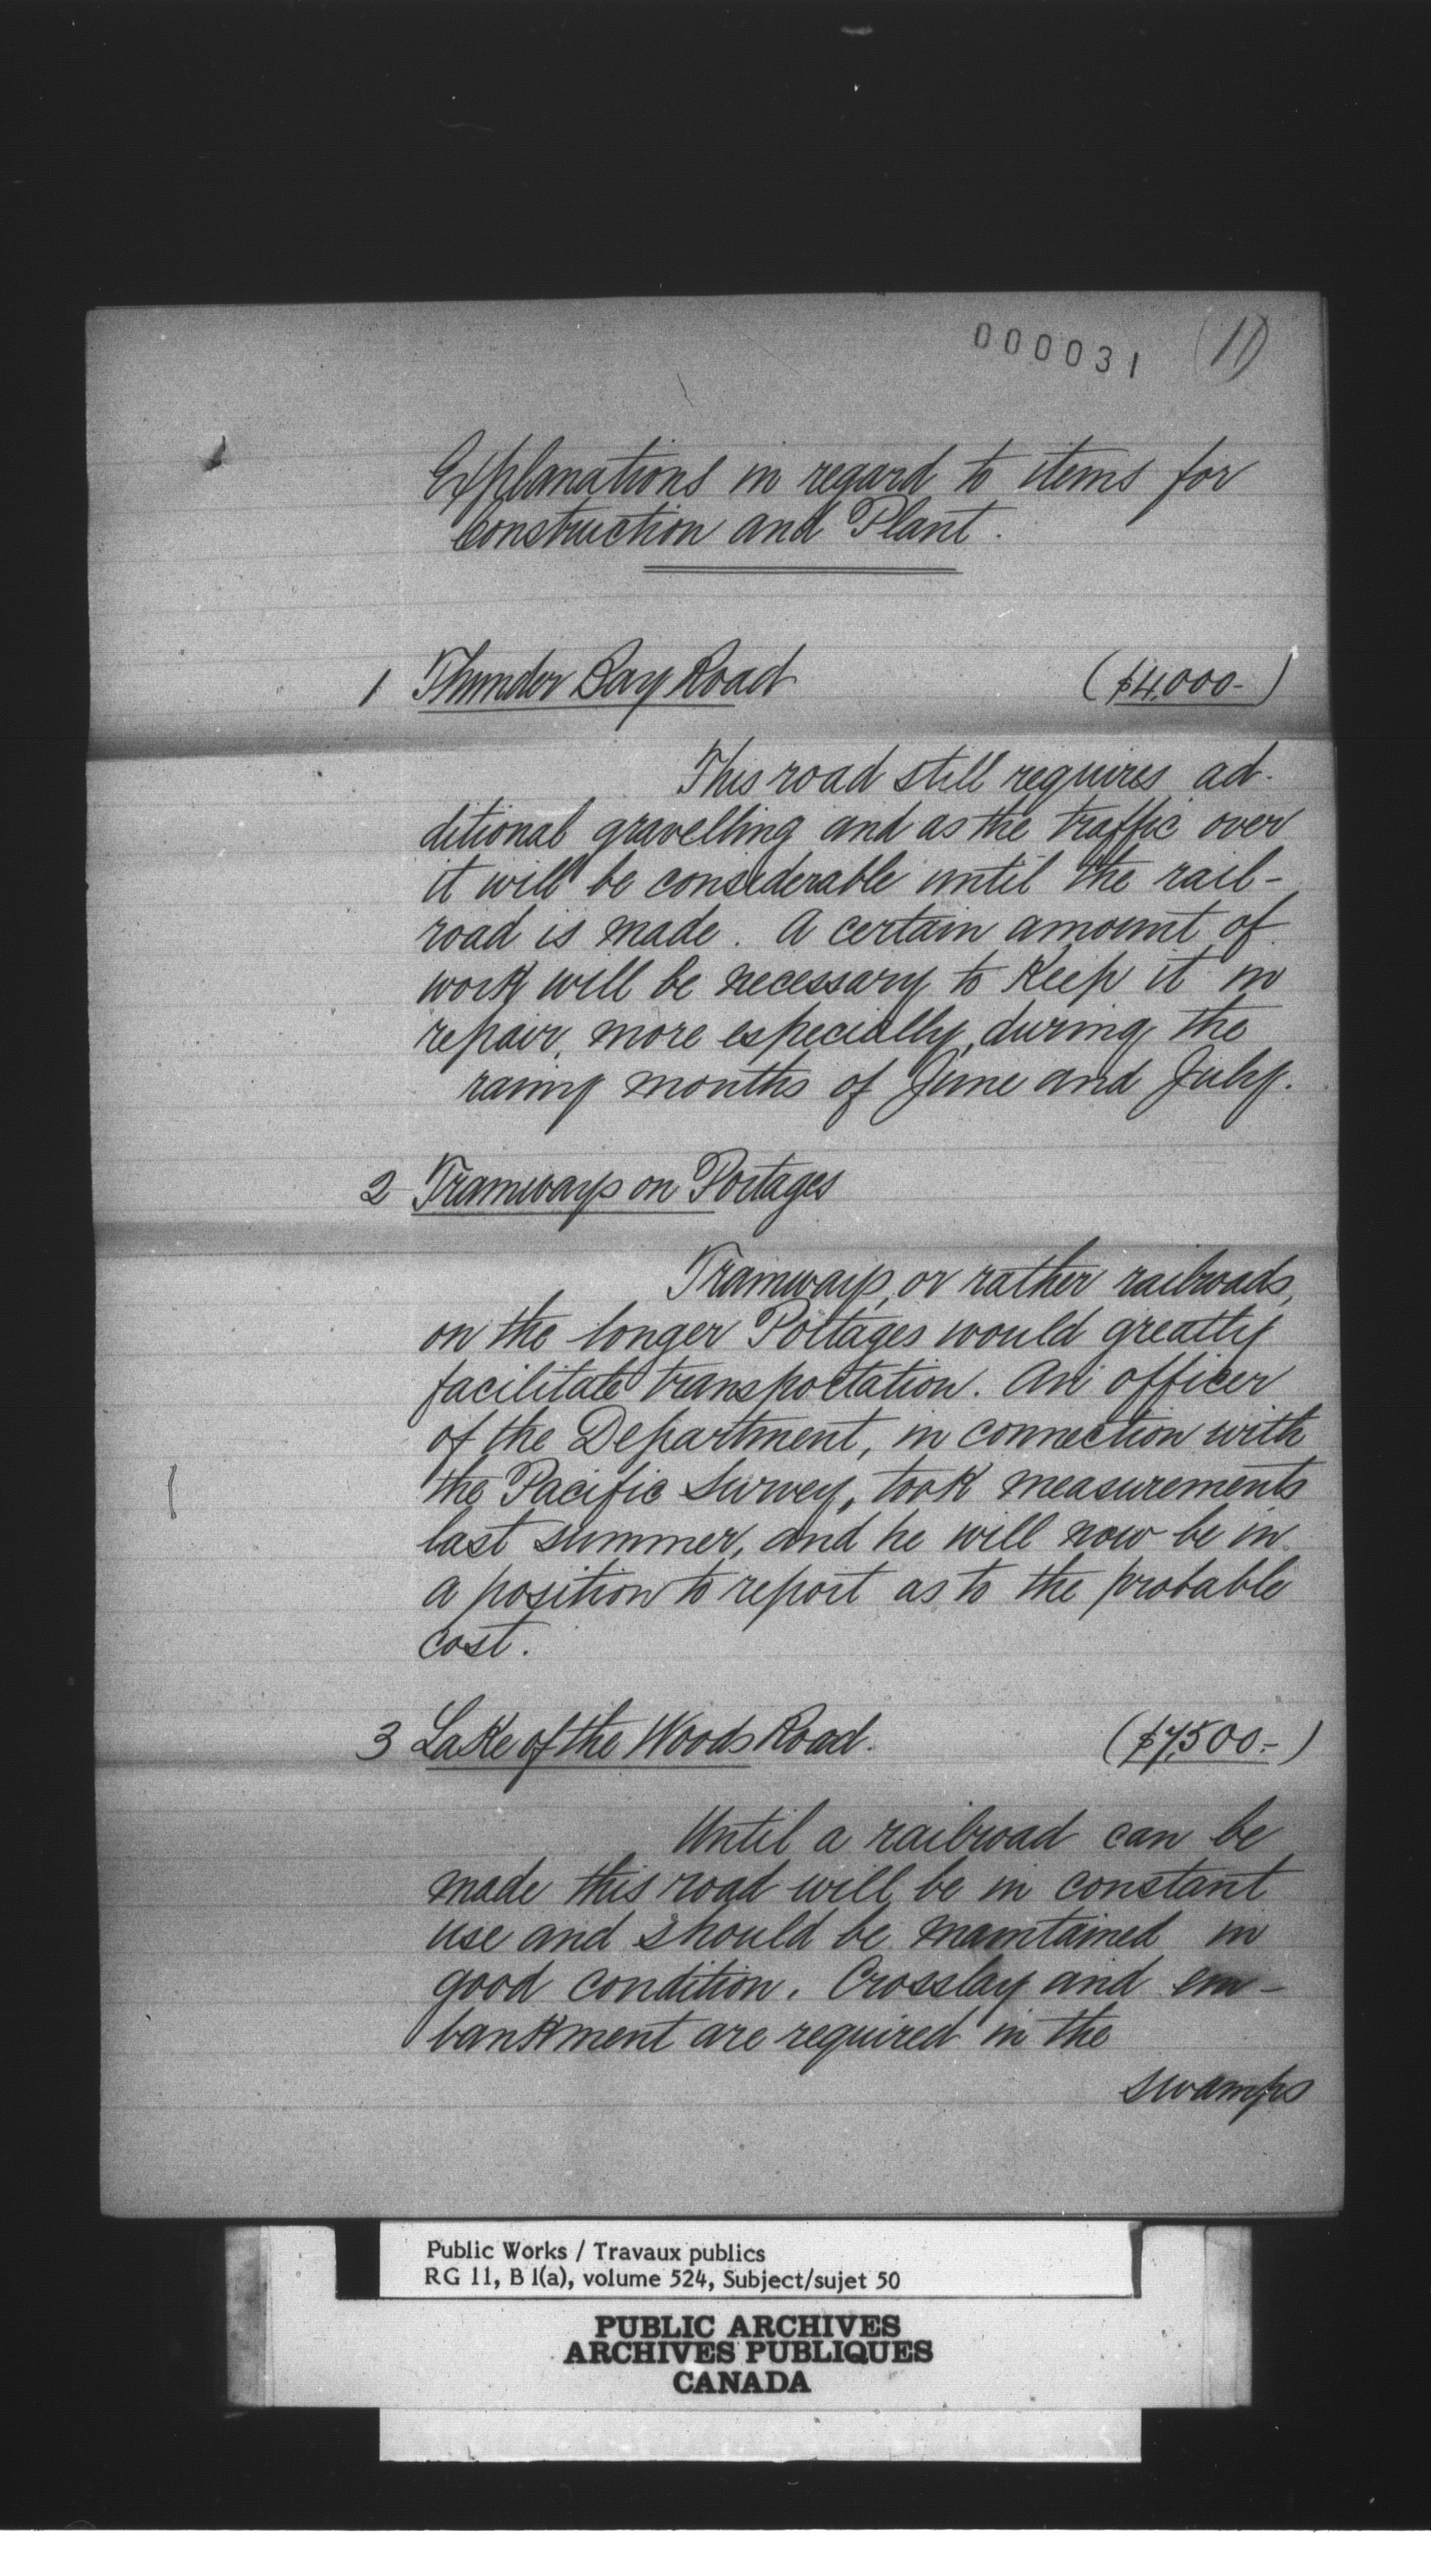 000031 (11)
Explanations in regard to items for
Construction and Plant.
1 Thunder Bay Road ($4,000-)
This road still requires ad-
ditional gravelling and as the traffic over
it will be considerable until the rail-
road is made. A certain amount of
work will be necessary to keep it in
repair, more especially, during the
rainy months of June and July.
2 Tramways on Portages
Tramways, or rather railroads,
on the longer Portages would greatly
facilitate transportation. An officer
of the Department, in connection with
the Pacific Survey, took measurements
last summer, and he will now be in
a position to report as to the probable
cost.
3 Lake of the Woods Road. ($7,500.-)
Until a railroad can be
made this road will be in constant
use and should be maintained in
good condition. Crosslay and em-
bankment are required in the
swamps
Public Works / Travaux publics
RG 11, B 1(a), volume 524, Subject/sujet 50
PUBLIC ARCHIVES
ARCHIVES PUBLIQUES
CANADA